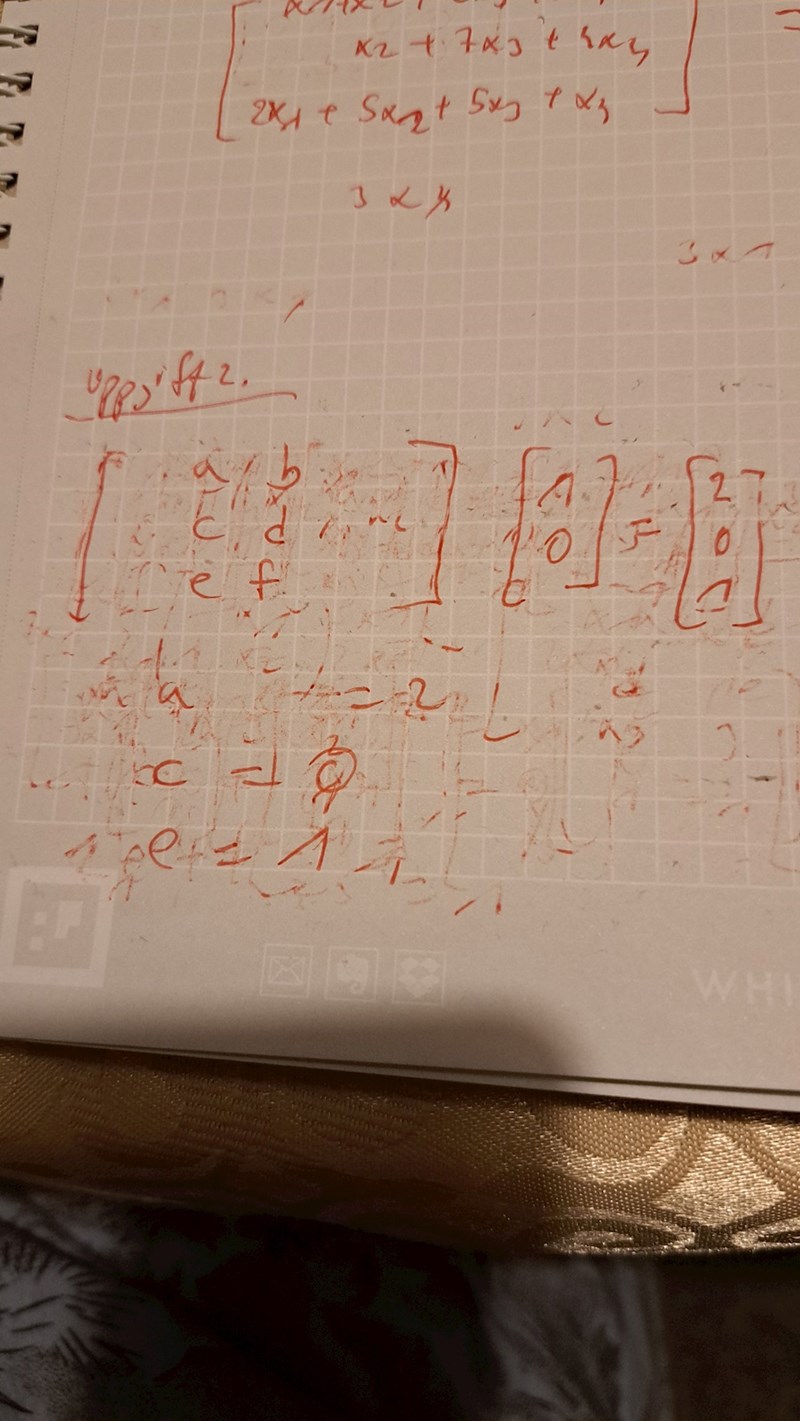 x2 + 7x3 + 4x4
2x1 + 5x2 + 5x3 + x4
3 x 4
3 x 1
uppgift 2.
a b
c d
e f
1
0
=
2
0
1
a = 2
c = 0
e = 1
WHI